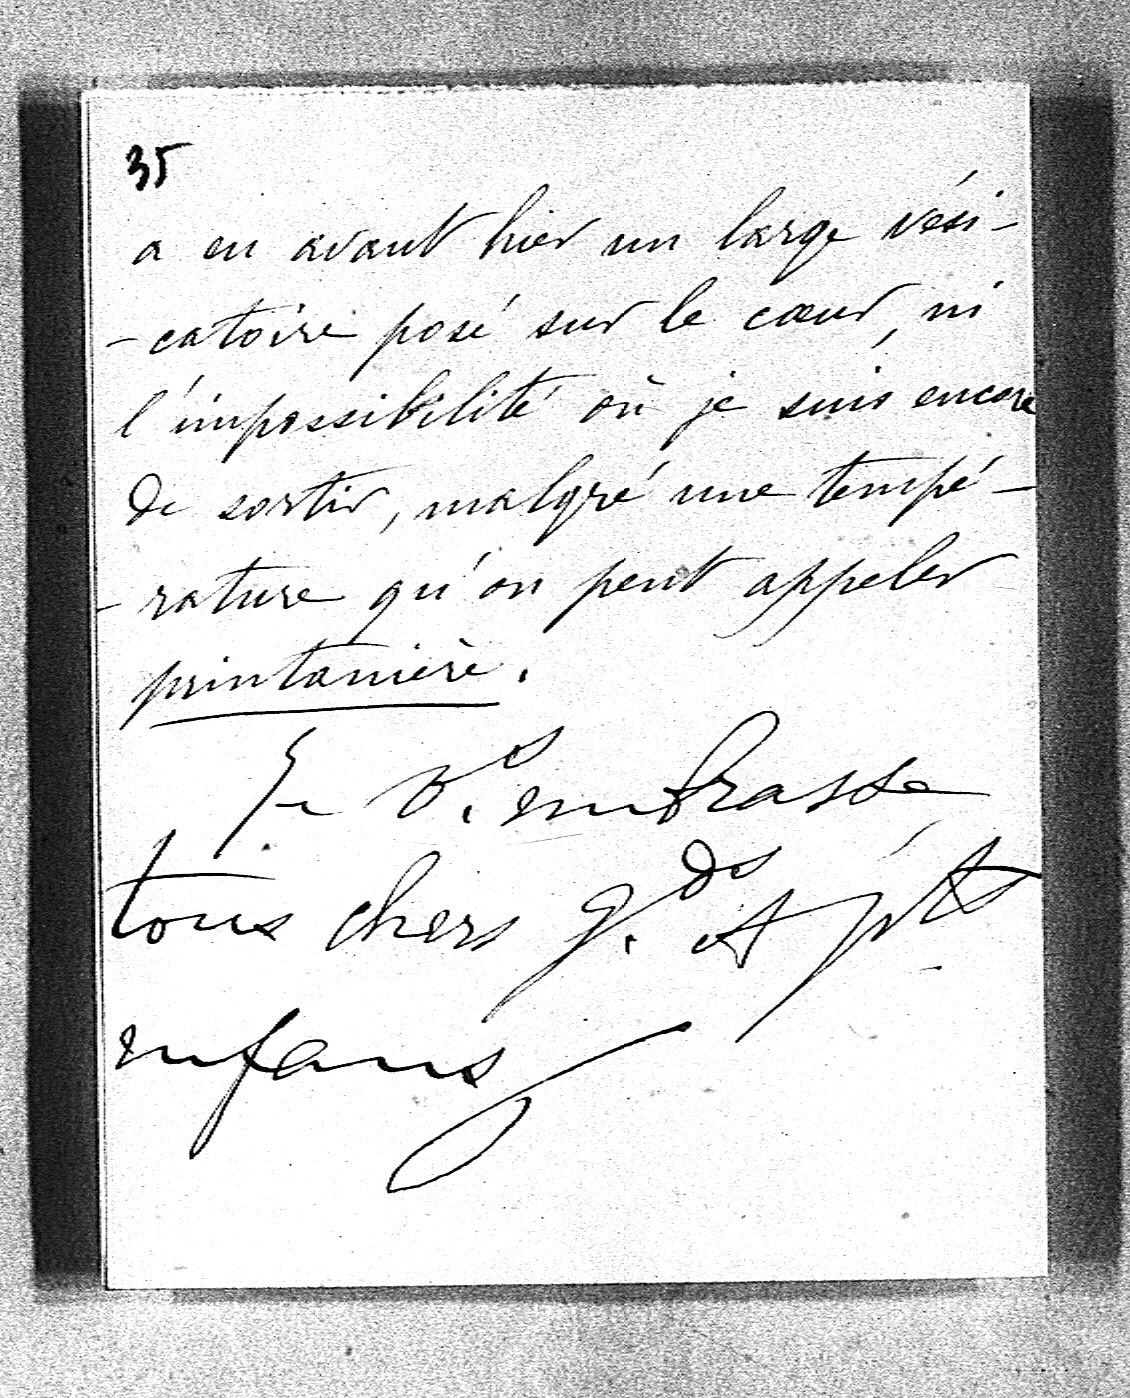 35
a eu avant hier un large vési-
-catoire posé sur le cœur, ni
l'impossibilité où je suis encore
de sortir, malgré une tempé-
-rature qu'on peut appeler
printanière.
Je v.s embrasse
tous chers g.ds et pts
enfans